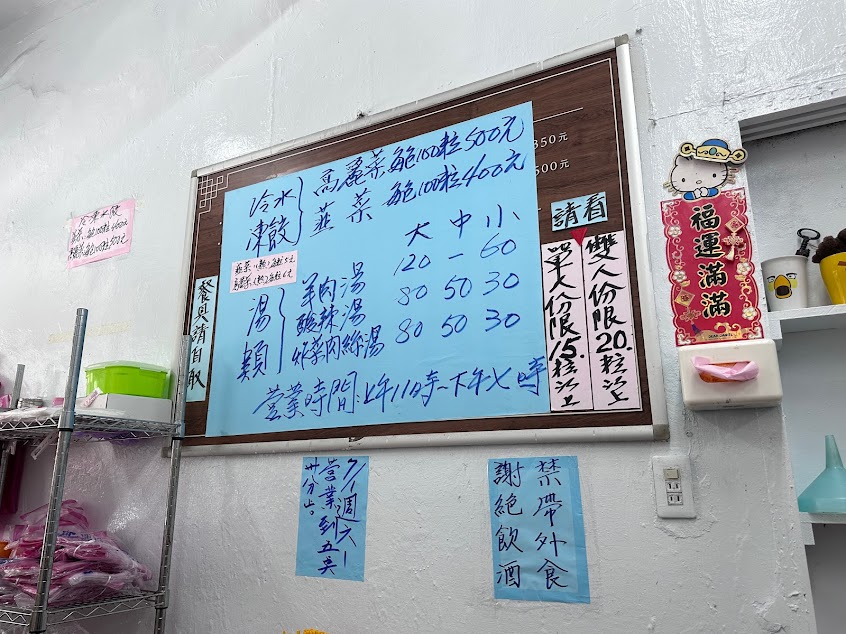 冷水
凍餃
高麗菜每包100粒500元
韮菜 每包100粒400元
350元
500元
大 中 小
湯類
羊肉湯 120 － 60
酸辣湯 80 50 30
炸菜肉絲湯 80 50 30
營業時間:上午11時~下午七時
餐具請自取
請看
單人份限15粒以上
雙人份限20粒以上
福運滿滿
營業到五點
卅分止。
禁帶外食
謝絕飲酒